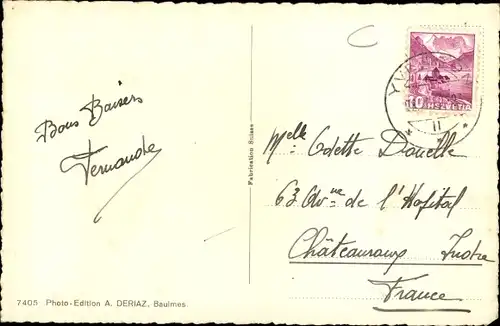 Bons Baisers
Fernande
Fabrication Suisse
10 HELVETIA
YV
II
Melle Odette Douelle
63 Ave de l'Hopital
Châteauroux Indre
France
7405 Photo-Edition A. DERIAZ, Baulmes.